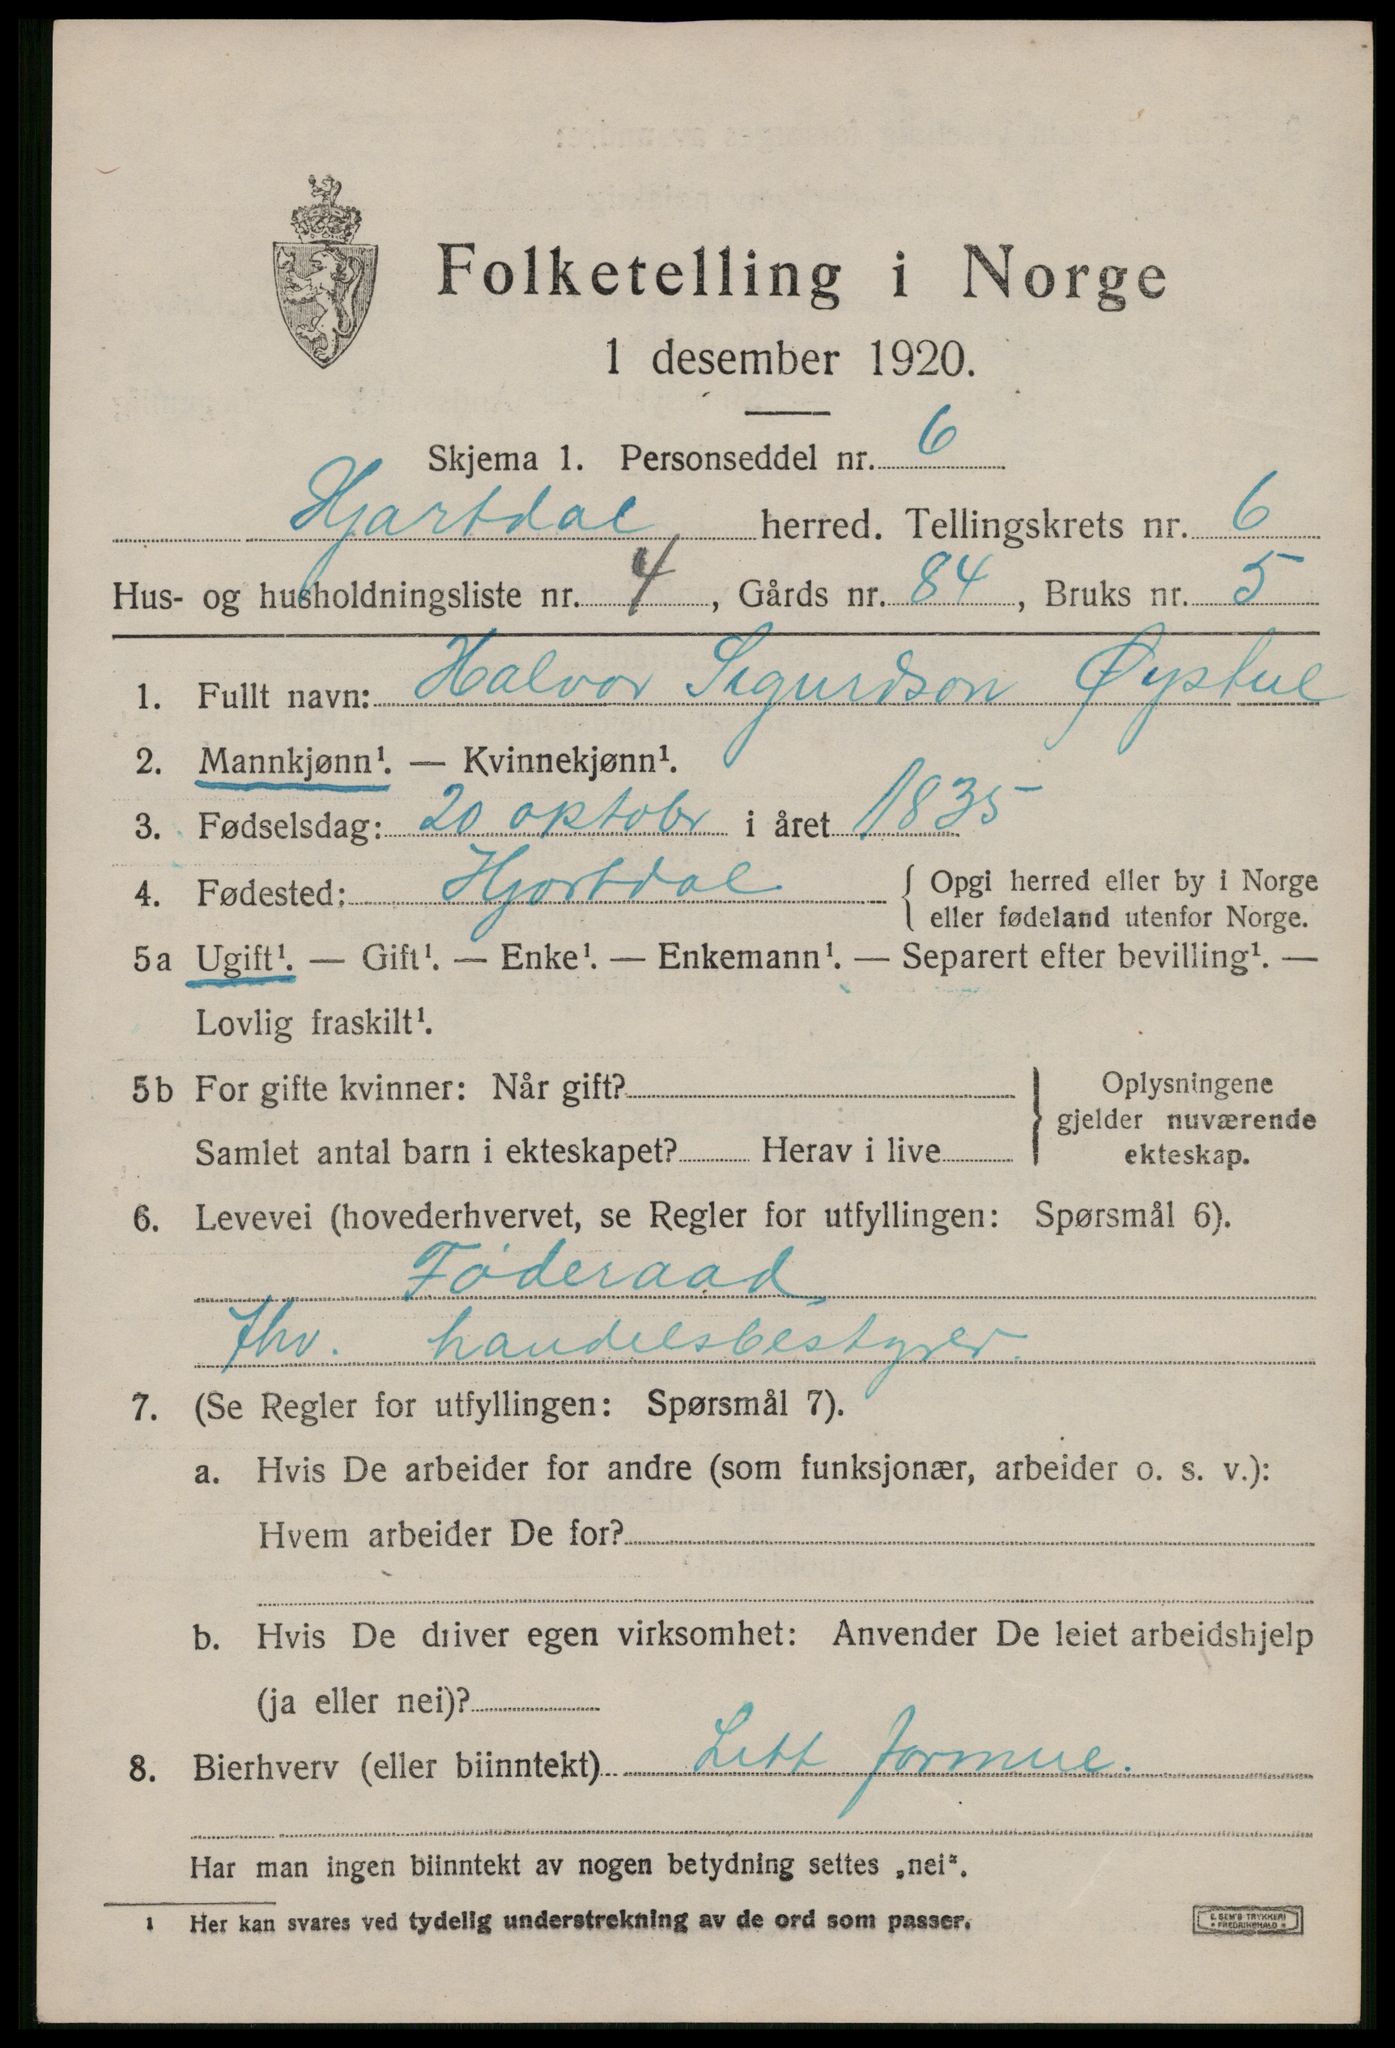 Folketelling i Norge
1 desember 1920.
Skjema 1. Personseddel nr. 6
Hjartdal herred. Tellingskrets nr. 6
Hus- og husholdningsliste nr. 4, Gårds nr. 84, Bruks nr. 5
1. Fullt navn: Halvor Sigurdson Øystul
2. Mannkjønn¹. — Kvinnekjønn¹.
3. Fødselsdag: 20 oktobr i året 1835
4. Fødested: Hjartdal { Opgi herred eller by i Norge
eller fødeland utenfor Norge.
5a Ugift¹. — Gift¹. — Enke¹. — Enkemann¹. — Separert efter bevilling¹. —
Lovlig fraskilt¹.
5b For gifte kvinner: Når gift?
Samlet antal barn i ekteskapet? Herav i live
} Oplysningene
gjelder nuværende
ekteskap.
6. Levevei (hovederhvervet, se Regler for utfyllingen: Spørsmål 6).
Föderaad
fhv. handelsbestyrer.
7. (Se Regler for utfyllingen: Spørsmål 7).
a. Hvis De arbeider for andre (som funksjonær, arbeider o. s. v.):
Hvem arbeider De for?
b. Hvis De driver egen virksomhet: Anvender De leiet arbeidshjelp
(ja eller nei)?
8. Bierhverv (eller biinntekt) Litt formue.
Har man ingen biinntekt av nogen betydning settes „nei“.
1 Her kan svares ved tydelig understrekning av de ord som passer.
E. SEM'S TRYKKERI
FREDRIKSHALD